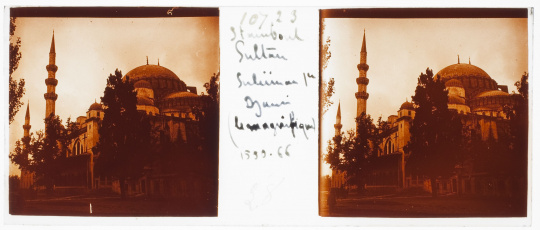 10723
Stamboul
Sultan
Suleiman 1er
Djami
(Le magnifique)
1599-66